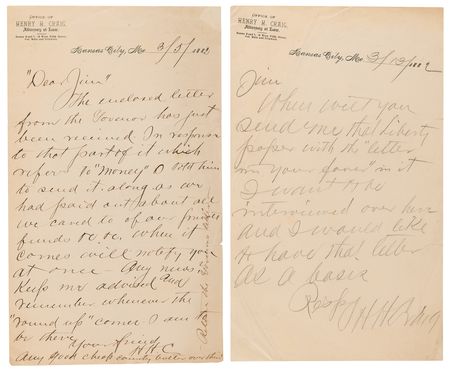 OFFICE OF
HENRY H. CRAIG,
Attorney at Law,
Kansas City, Mo 3/5/ 1882
"Dear Jim"
The enclosed letter
from the Govenor has just
been received In response
to that part of it which
refers to "money" I told him
to send it along as we
had paid out about all
we cared to of our private
funds &c. &c. when it
comes will notify you
at once - Any news?
Keep me advised and
remember whenever the
"round up" comes I am to
be there
Your friend
H H C
Any good cheap county butter over there
Return the Governors letter
OFFICE OF
HENRY H. CRAIG,
Attorney at Law,
Kansas City, Mo 3/13/ 1882
Jim
When will you
send me that Liberty
paper with the letter
in your favor in it
I want to be
interviewed over here
and I would like
to have that letter
as a basis
Resp
H H Craig